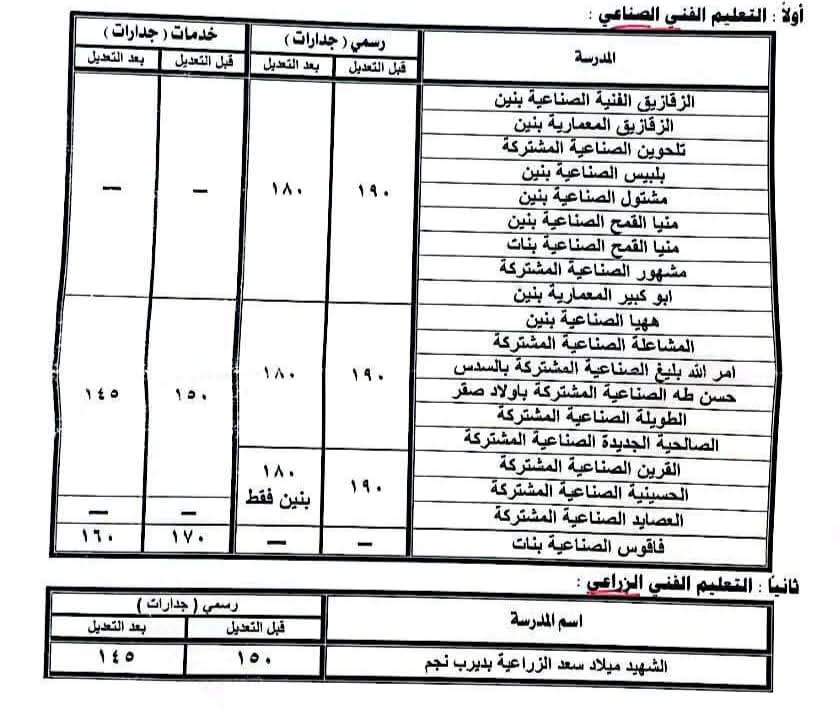 أولاً : التعليم الفني الصناعي :
المدرسة
رسمي ( جدارات )
خدمات ( جدارات )
قبل التعديل
بعد التعديل
قبل التعديل
بعد التعديل
الزقازيق الفنية الصناعية بنين
الزقازيق المعمارية بنين
تلحوين الصناعية المشتركة
بلبيس الصناعية بنين
مشتول الصناعية بنين
منيا القمح الصناعية بنين
منيا القمح الصناعية بنات
مشهور الصناعية المشتركة
ابو كبير المعمارية بنين
١٩٠
١٨٠
—
—
ههيا الصناعية بنين
المشاعلة الصناعية المشتركة
امر الله بليغ الصناعية المشتركة بالسدس
حسن طه الصناعية المشتركة باولاد صقر
الطويلة الصناعية المشتركة
الصالحية الجديدة الصناعية المشتركة
١٩٠
١٨٠
١٥٠
١٤٥
القرين الصناعية المشتركة
الحسينية الصناعية المشتركة
العصايد الصناعية المشتركة
١٩٠
١٨٠
بنين فقط
—
—
فاقوس الصناعية بنات
—
—
١٧٠
١٦٠
ثانياً : التعليم الفني الزراعي :
اسم المدرسة
رسمي ( جدارات )
قبل التعديل
بعد التعديل
الشهيد ميلاد سعد الزراعية بديرب نجم
١٥٠
١٤٥